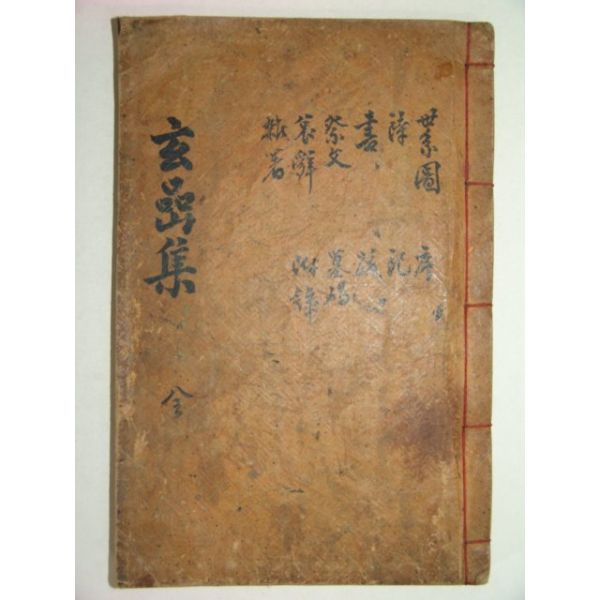 世系圖 序
詩 記
書 跋
祭文 墓碣
哀辭 附錄
雜著
玄嵒集 全